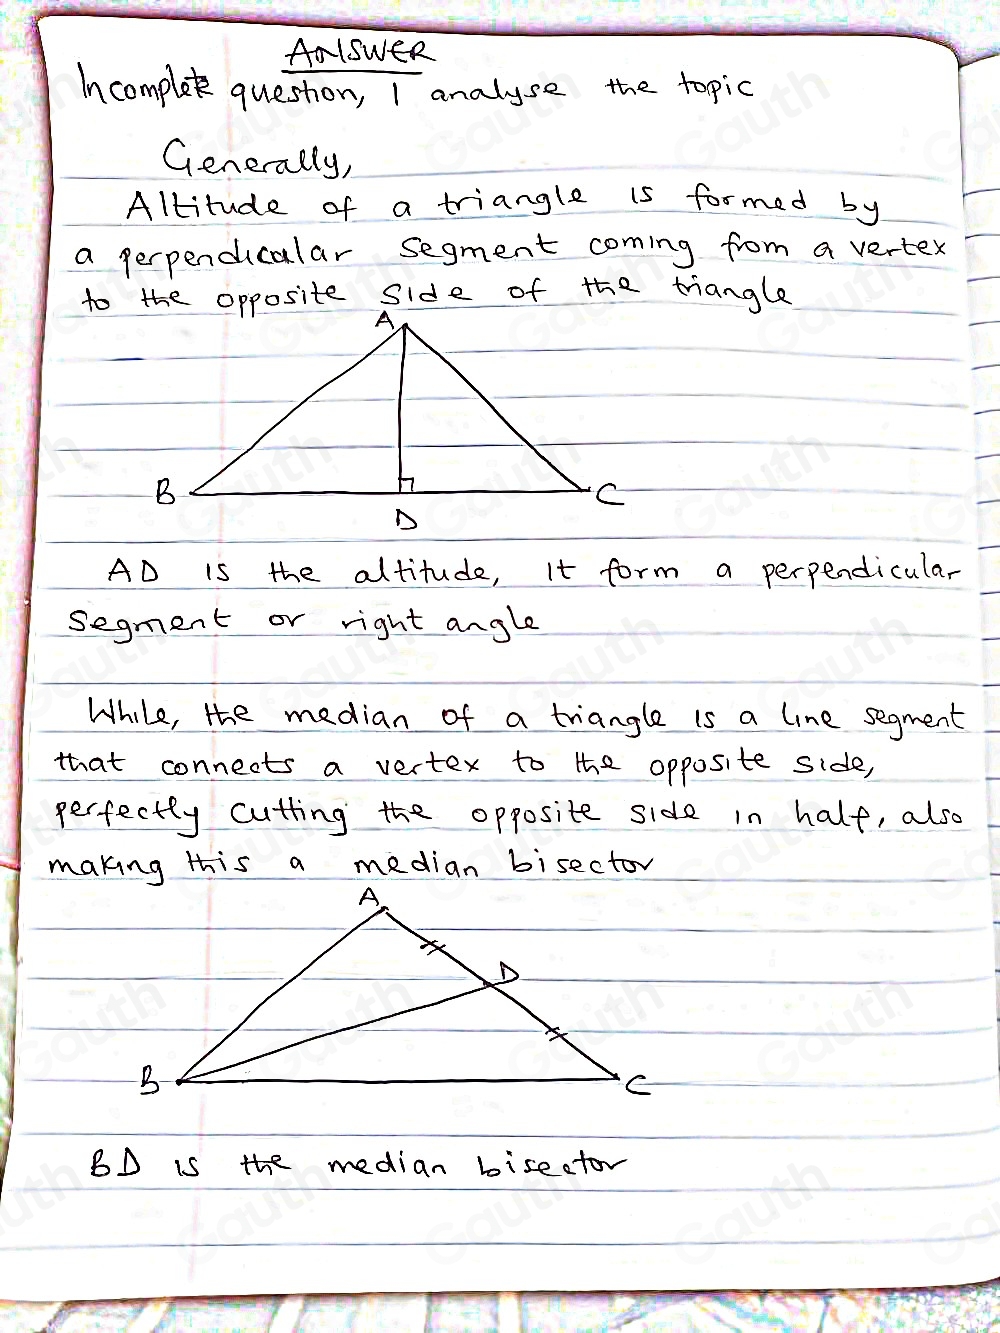 ANSWER
Incomplete question, I analyse the topic
Generally,
Altitude of a triangle is formed by
a perpendicular segment coming from a vertex
to the opposite side of the triangle
A
B
C
D
AD is the altitude, It form a perpendicular
segment or right angle
While, the median of a triangle is a line segment
that connects a vertex to the opposite side,
perfectly cutting the opposite side in half, also
making this a median bisector
A
D
B
C
BD is the median bisector